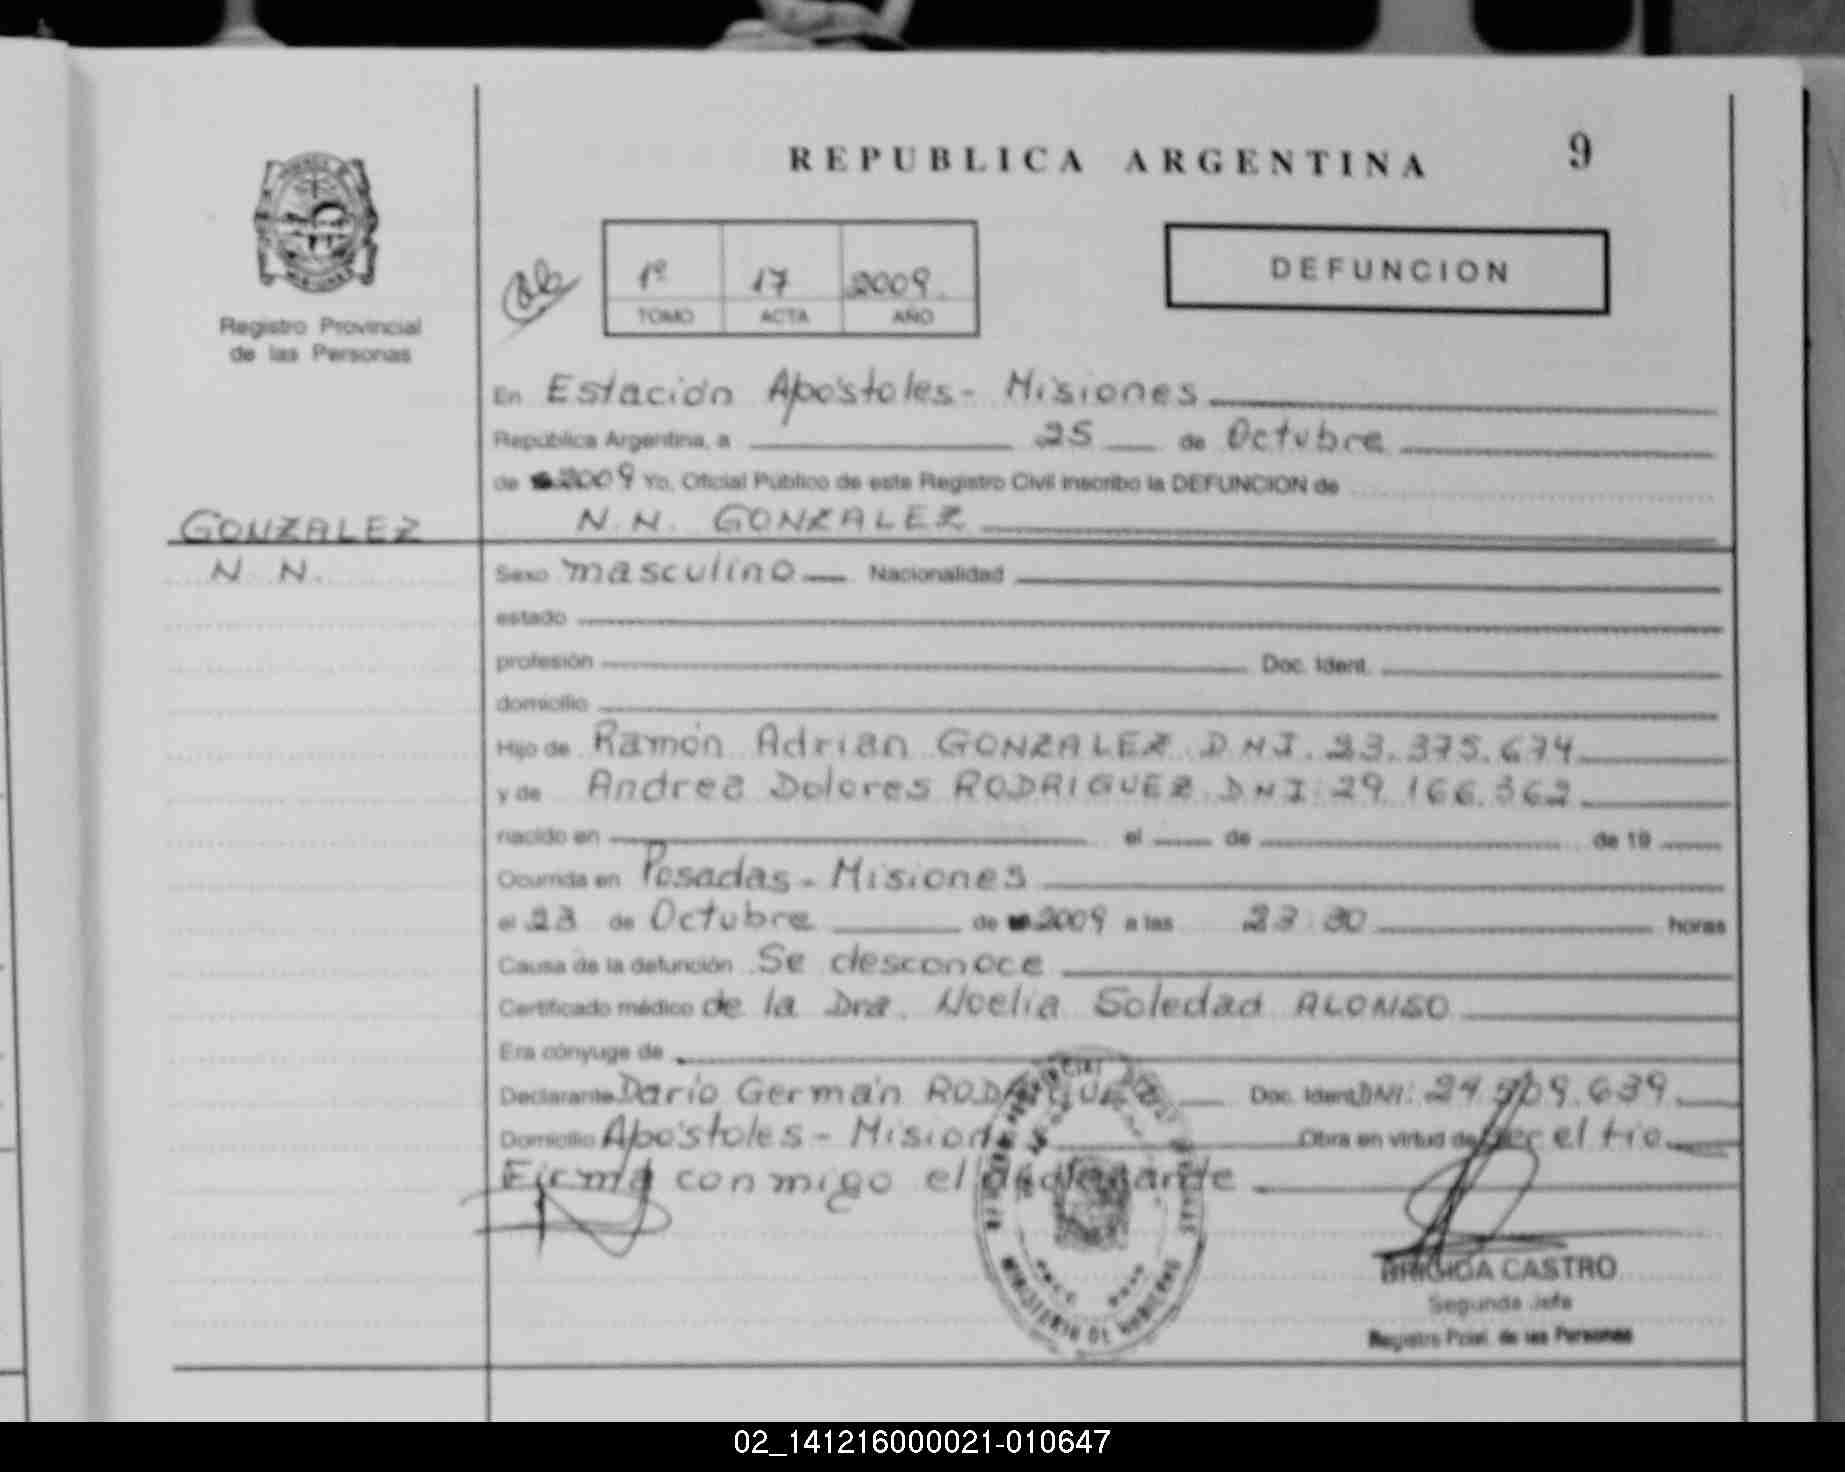 REPUBLICA ARGENTINA
9
DEFUNCION
1º 17 2009
TOMO ACTA AÑO
Registro Provincial
de las Personas
En Estación Apóstoles - Misiones
República Argentina, a 25 de Octubre
de 2009 Yo, Oficial Público de este Registro Civil inscribo la DEFUNCION de
GONZALEZ
N. N.
N. N. GONZALEZ
Sexo masculino Nacionalidad
estado
profesión Doc. Ident.
domicilio
Hijo de Ramón Adrian GONZALEZ D.N.I. 23.375.674
y de Andrea Dolores RODRIGUEZ D.N.I. 29.166.362
nacido en el de de 19
Ocurrida en Posadas - Misiones
el 23 de Octubre de 2009 a las 23:30 horas
Causa de la defunción Se desconoce
Certificado médico de la Dra. Noelia Soledad ALONSO
Era cónyuge de
Declarante Darío Germán RODRIGUEZ Doc. Ident. DNI: 24.509.639
Domicilio Apóstoles - Misiones Obra en virtud de ser el tío
Firma conmigo el declarante
MINISTERIO DE GOBIERNO
BRIGIDA CASTRO
Segunda Jefe
Registro Pcial. de las Personas
02_141216000021-010647